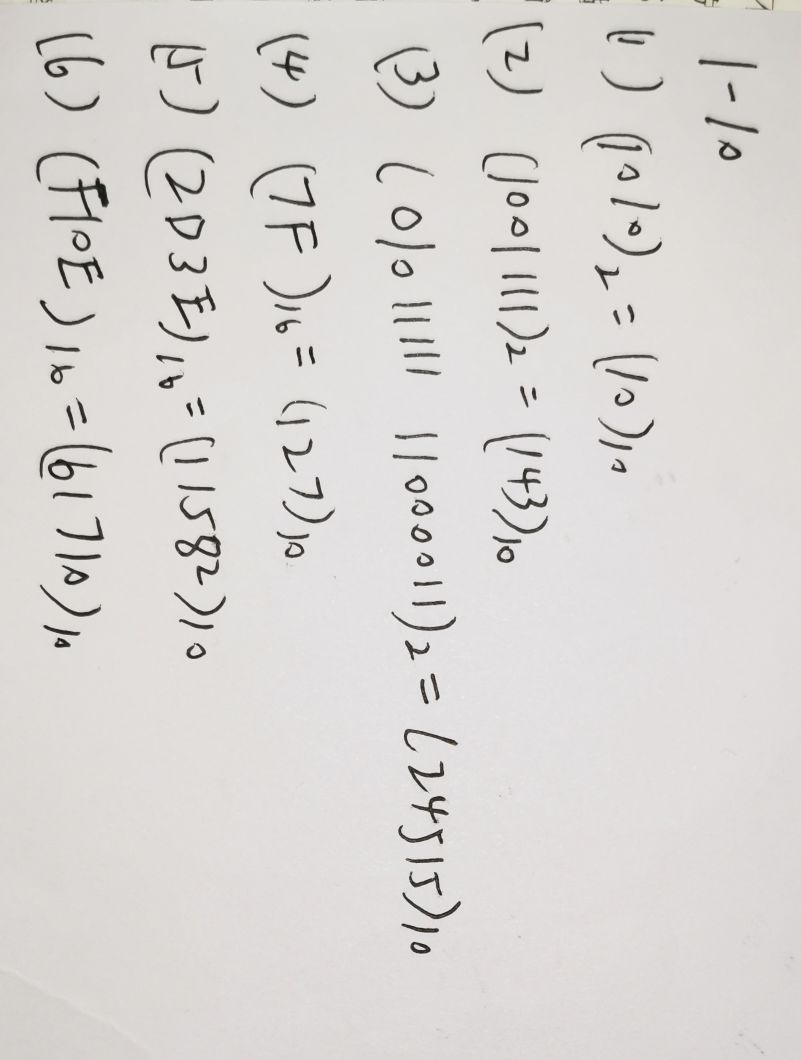 1-10
(1) (1010)₂ = (10)₁₀
(2) (1001111)₂ = (143)₁₀
(3) (01011111 11000011)₂ = (24515)₁₀
(4) (7F)₁₆ = (127)₁₀
(5) (2D3E)₁₆ = (11582)₁₀
(6) (F10E)₁₆ = (61710)₁₀